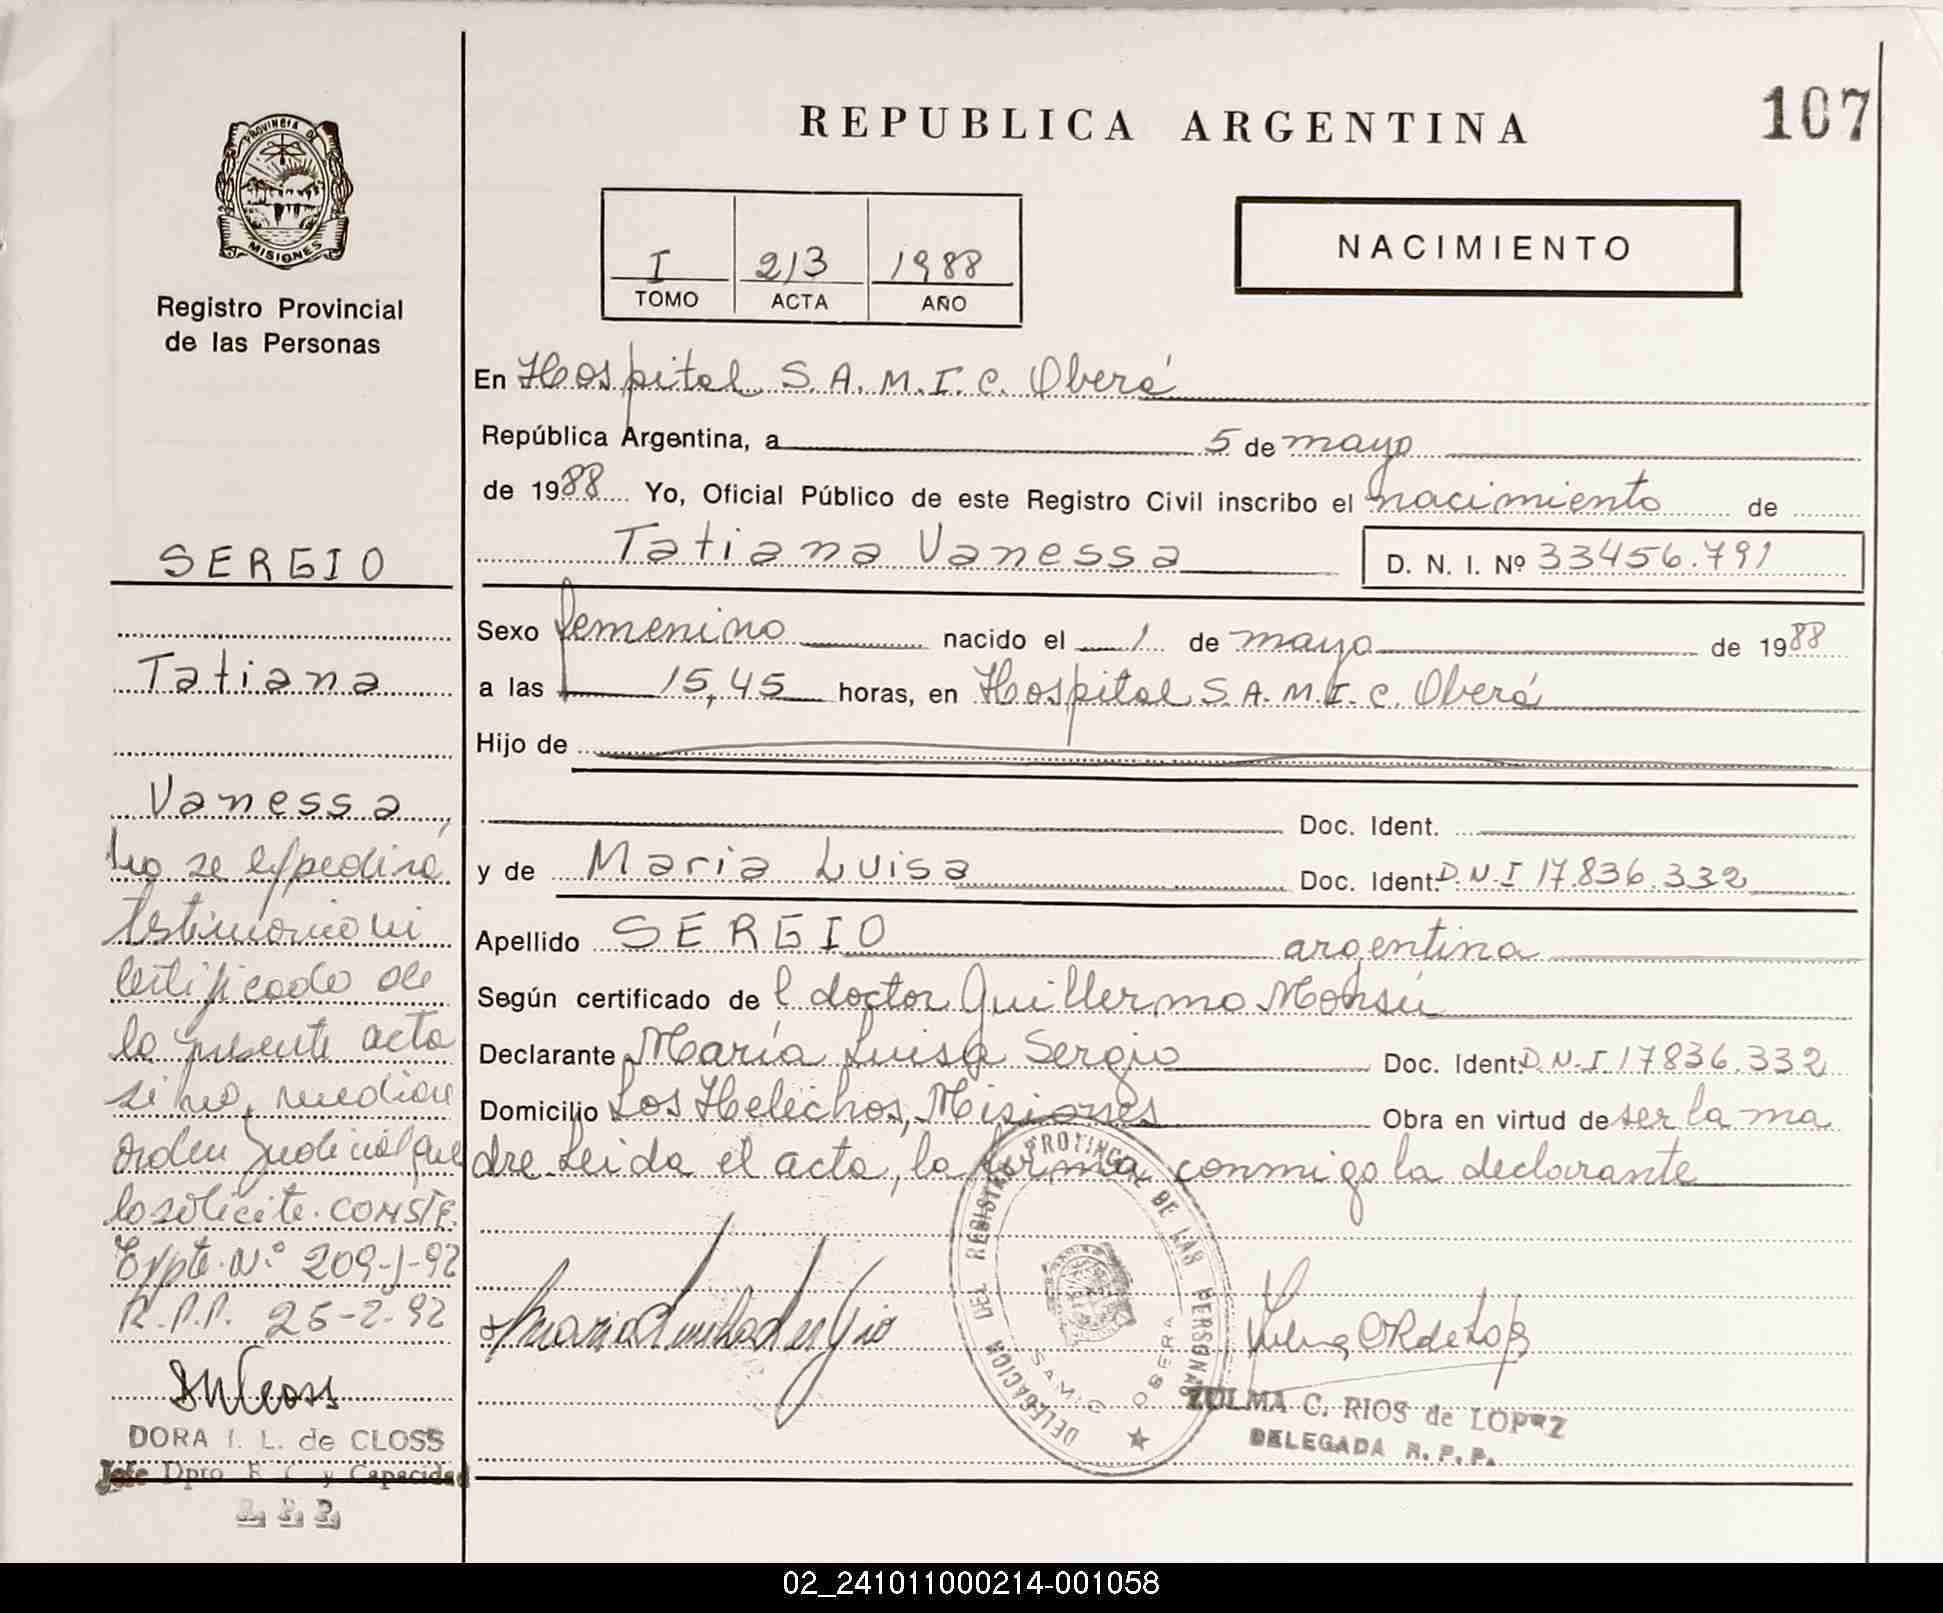 PROVINCIA DE
MISIONES
Registro Provincial
de las Personas
SERGIO
Tatiana
Vanessa,
No se expedirá
testimonio ni
certificado de
la presente acta
si no, median
orden Judicial que
lo solicite. CONSTE.
Expte. Nº 209-J-92
R.P.P. 25-2-92
DORA I. L. de CLOSS
Jefe Dpto R. C. y Capacidad
R. P. P.
REPUBLICA ARGENTINA
107
I 213 1988
TOMO ACTA AÑO
NACIMIENTO
En Hospital S.A.M.I.C. Oberá
República Argentina, a 5 de mayo
de 1988 Yo, Oficial Público de este Registro Civil inscribo el nacimiento de
Tatiana Vanessa D. N. I. Nº 33456.791
Sexo femenino nacido el 1 de mayo de 1988
a las 15,45 horas, en Hospital S.A.M.I.C. Oberá
Hijo de
Doc. Ident.
y de Maria Luisa Doc. Ident. D.N.I 17.836.332
Apellido SERGIO argentina
Según certificado de l doctor Guillermo Monsú
Declarante María Luisa Sergio Doc. Ident. D.N.I 17836.332
Domicilio Los Helechos, Misiones Obra en virtud de ser la ma
dre Leida el acta, la firma conmigo la declarante
DELEGACION DEL REGISTRO PROVINCIAL DE LAS PERSONAS
SAMIC OBERA
ZULMA C. RIOS de LOPEZ
DELEGADA R. P. P.
02_241011000214-001058